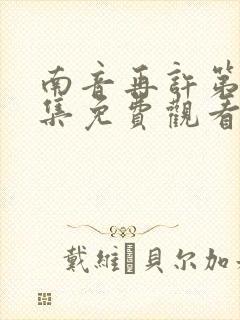 南音再許第
集免費觀看
戴維·貝尔加